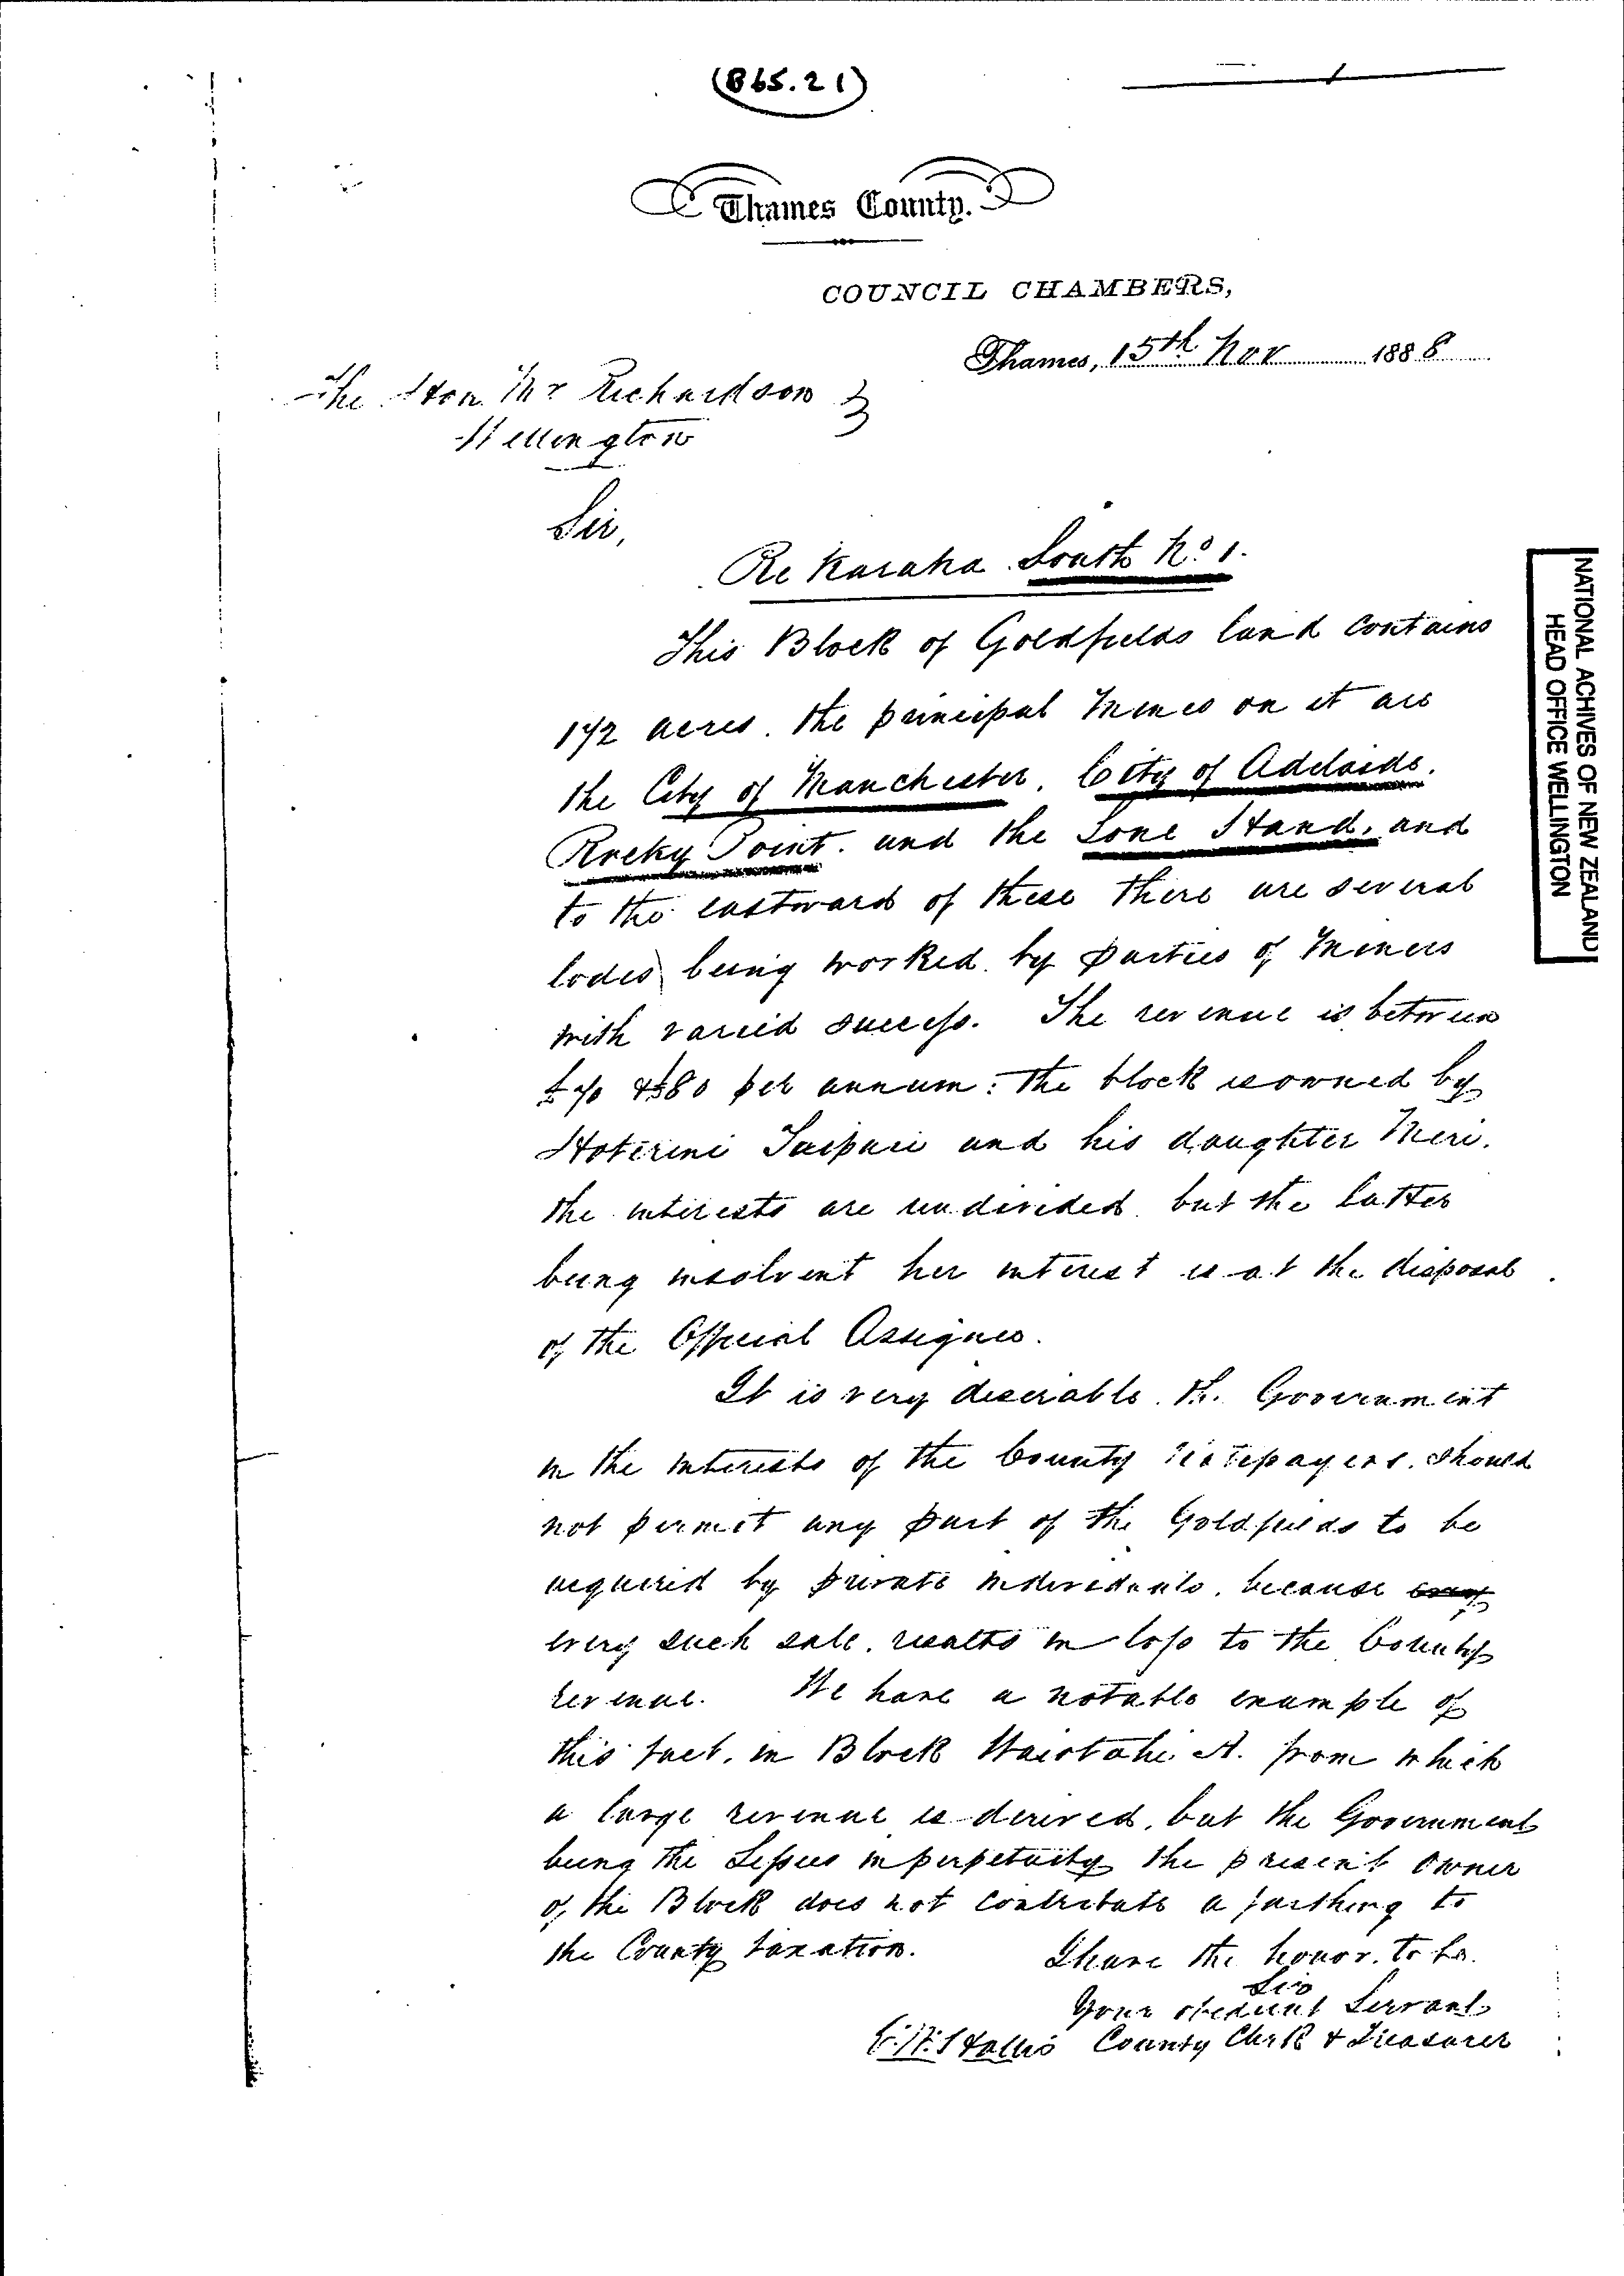 (865.21)
Thames County.
COUNCIL CHAMBERS,
Thames, 15th Nov 1888
The Hon. Mr Richardson
Wellington
Sir,
Re Karaka South No 1.
This Block of Goldfields land contains
172 acres. the principal Mines on it are
the City of Manchester. City of Adelaide.
Rocky Point. and the Lone Hand. and
to the eastward of these there are several
lodes being worked by parties of Miners
with varied success. The revenue is between
£70 & £80 per annum: The block is owned by
Hoterini Taipari and his daughter Meri.
the interests are undivided but the latter
being insolvent her interest is at the disposal
of the Official Assignee.
It is very desirable. the Government
in the interests of the County ratepayers. should
not permit any part of the Goldfields to be
acquired by private individuals. because
every such sale. results in loss to the County
revenue. We have a notable example of
this fact. in Block Waiotahi A. from which
a large revenue is derived. but the Government
being the Lessees in perpetuity the present owner
of the Block does not contribute a farthing to
the County taxation. I have the honor. to be.
Sir
Your obedient Servant
County Clerk & Treasurer
NATIONAL ACHIVES OF NEW ZEALAND
HEAD OFFICE WELLINGTON